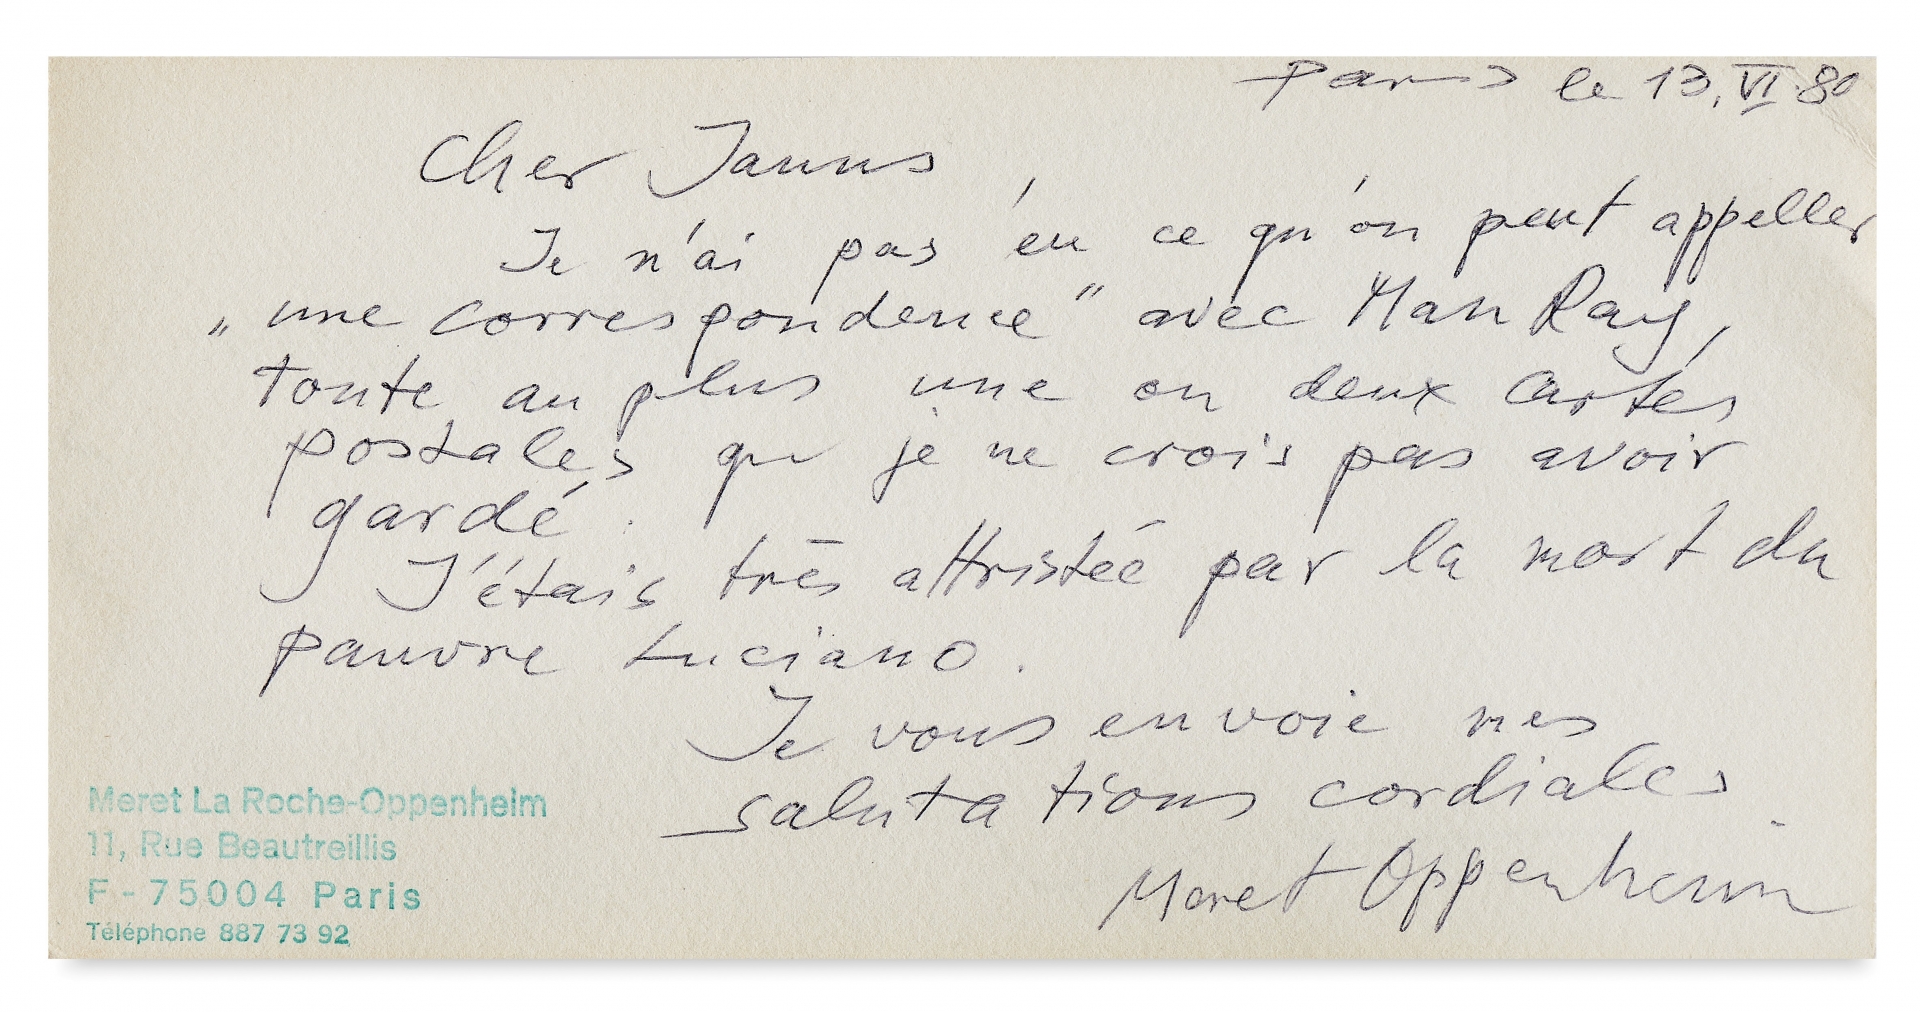 Paris le 13. VI 80
Cher Janus,
Je n'ai pas éu ce qu'on peut appeller
„une correspondence" avec Man Ray,
toute au plus une ou deux cartes
postales que je ne crois pas avoir
gardé.
J'étais très attristée par la mort du
pauvre Luciano.
Je vous envoie mes
salutations cordiales
Meret Oppenheim
Meret La Roche-Oppenheim
11, Rue Beautreillis
F-75004 Paris
Téléphone 887 73 92